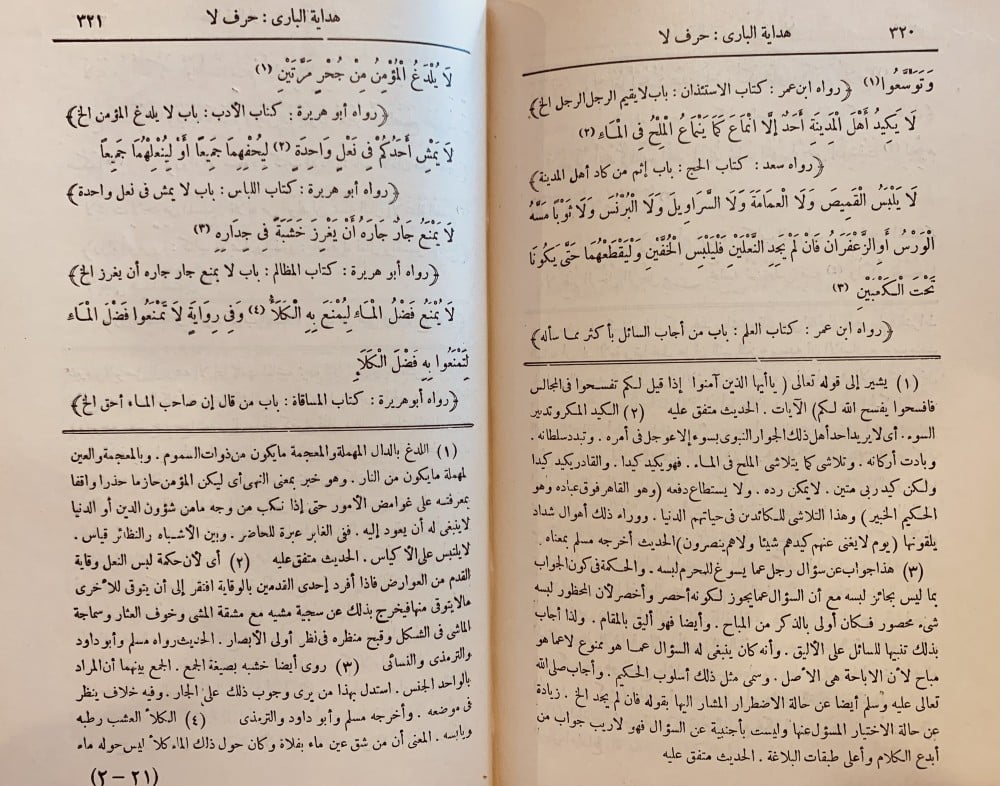 ٣٢٠ هداية البارى : حرف لا
وَتَوَسَّعُوا (١) ﴿رواه ابن عمر : كتاب الاستئذان : باب لا يقيم الرجل الرجل الخ﴾
لَا يَكِيدُ أَهْلَ الْمَدِينَةِ أَحَدٌ إلَّا انْمَاعَ كَمَا يَنْمَاعُ الْمِلْحُ فِى الْمَـاءِ (٢)
﴿رواه سعد : كتاب الحج : باب إثم من كاد أهل المدينة﴾
لَا يَلْبَسُ الْقَمِيصَ وَلَا الْعِمَامَةَ وَلَا السَّرَاوِيلَ وَلَا الْبُرْنُسَ وَلَا ثَوْبًا مَسَّهُ
الْوَرْسُ أَوِ الزَّعْفَرَانُ فَانْ لَمْ يَجِدِ النَّعْلَيْنِ فَلْيَلْبَسِ الْخُفَّيْنِ وَلْيَقْطَعْهُمَا حَتَّى يَكُونَا
تَحْتَ الْـكَعْبَيْنِ (٣)
﴿رواه ابن عمر : كتاب العلم : باب من أجاب السائل بأكثر مما سأله﴾
(١) يشير إلى قوله تعالى ( ياأيها الذين آمنوا إذا قيل لـكم تفسحوا فى المجالس
فافسحوا يفسح الله لـكم) الآيات . الحديث متفق عليه (٢) الـكيد المـكر وتدبير
السوء . أى لا يريد احد أهل ذلك الجوار النبوى بسوء إلا عوجل فى أمره . وتبدد سلطانه .
وبادت أركانه . وتلاشى كما يتلاشى الملح فى المـاء . فهو يكيد كيدا . والقادر يكيد كيدا
ولكن كيد ربى متين . لايمكن رده . ولا يستطاع دفعه (وهو القاهر فوق عباده وهو
الحـكيم الخبير) وهذا التلاشى للـكائدين فى حياتهم الدنيا . ووراء ذلك أهوال شداد
يلقونها (يوم لايغنى عنهم كيدهم شيئا ولاهم ينصرون) الحديث أخرجه مسلم بمعناه .
(٣) هذا جواب عن سؤال رجل عما يسوغ للمحرم لبسه . والحـكمة فى كون الجواب
بما ليس بجائز لبسه مع أن السؤال عما يجوز لـكونه أحصر وأخصر لأن المحظور لبسه
شىء محصور فـكان أولى بالذكر من المباح . وأيضا فهو أليق بالمقام . ولذا أجاب
بذلك تنبيها للسائل على الأليق . وأنه كان ينبغى له السؤال عمـا هو ممنوع لاعما هو
مباح لأن الاباحة هى الأصل . وسمى مثل ذلك أسلوب الحـكيم . وأجاب صلى الله
تعالى عليه وسلم أيضا عن حالة الاضطرار المشار اليها بقوله فان لم يجد الخ . زيادة
عن حالة الاختيار المسؤل عنها وليست بأجنبية عن السؤال فهو لاريب جواب من
أبدع الكلام وأعلى طبقات البلاغة . الحديث متفق عليه
هداية البارى : حرف لا ٣٢١
لَا يُلْدَغُ الْمُؤْمِنُ مِنْ جُحْرٍ مَرَّتَيْنِ (١)
﴿رواه أبو هريرة : كتاب الأدب : باب لا يلدغ المؤمن الخ﴾
لَا يَمْشِ أَحَدُكُمْ فِى نَعْلٍ وَاحِدَةٍ (٢) لِيُحْفِهِمَا جَمِيعًا أَوْ لِيُنْعِلْهُمَا جَمِيعًا
﴿رواه أبو هريرة : كتاب اللباس : باب لا يمش فى نعل واحدة﴾
لَا يَمْنَعُ جَارٌ جَارَهُ أَنْ يَغْرِزَ خَشَبَةً فِى جِدَارِهِ (٣)
﴿رواه أبو هريرة : كتاب المظالم : باب لا يمنع جار جاره أن يغرز الخ﴾
لَا يُمْنَعُ فَضْلُ الْمَـاءِ لِيُمْنَعَ بِهِ الْـكَلَأُ (٤) وَفِى رِوَايَةٍ لَا تَمْنَعُوا فَضْلَ الْمَـاءِ
لِتَمْنَعُوا بِهِ فَضْلَ الْـكَلَإِ
﴿رواه أبو هريرة : كتاب المساقاة : باب من قال إن صاحب المـاء أحق الخ﴾
(١) اللدغ بالدال المهملة والمعجمة مايكون من ذوات السموم . وبالمعجمة والعين
لمهملة مايكون من النار . وهو خبر بمعنى النهى أى ليكن المؤمن حازما حذرا واقفا
بمعرفته على غوامض الأمور حتى إذا نـكب من وجه مامن شؤون الدين أو الدنيا
لاينبغى له أن يعود إليه . ففى الغابر عبرة للحاضر . وبين الأشباه والنظائر قياس .
لايلتبس على الأكياس . الحديث متفق عليه (٢) أى لأن حكمة لبس النعل وقاية
القدم من العوارض فاذا أفرد إحدى القدمين بالوقاية افتقر إلى أن يتوقى للأخرى
مالا يتوقى منها فيخرج بذلك عن سجية مشيه مع مشقة المشى وخوف العثار وسماجة
الماشى فى الشـكل وقبح منظره فى نظر أولى الأبصار . الحديث رواه مسلم وأبو داود
والترمذى والنسائى (٣) روى أيضا خشبه بصيغة الجمع . الجمع بينهما أن المراد
بالواحد الجنس . استدل بهذا من يرى وجوب ذلك على الجار . وفيه خلاف ينظر
فى موضعه . وأخرجه مسلم وأبو داود والترمذى (٤) الكلأ العشب رطبه
ويابسه . المعنى أن من شق عين ماء بفلاة وكان حول ذلك الماء كلأ ليس حوله ماء
(٢١ – ٢)